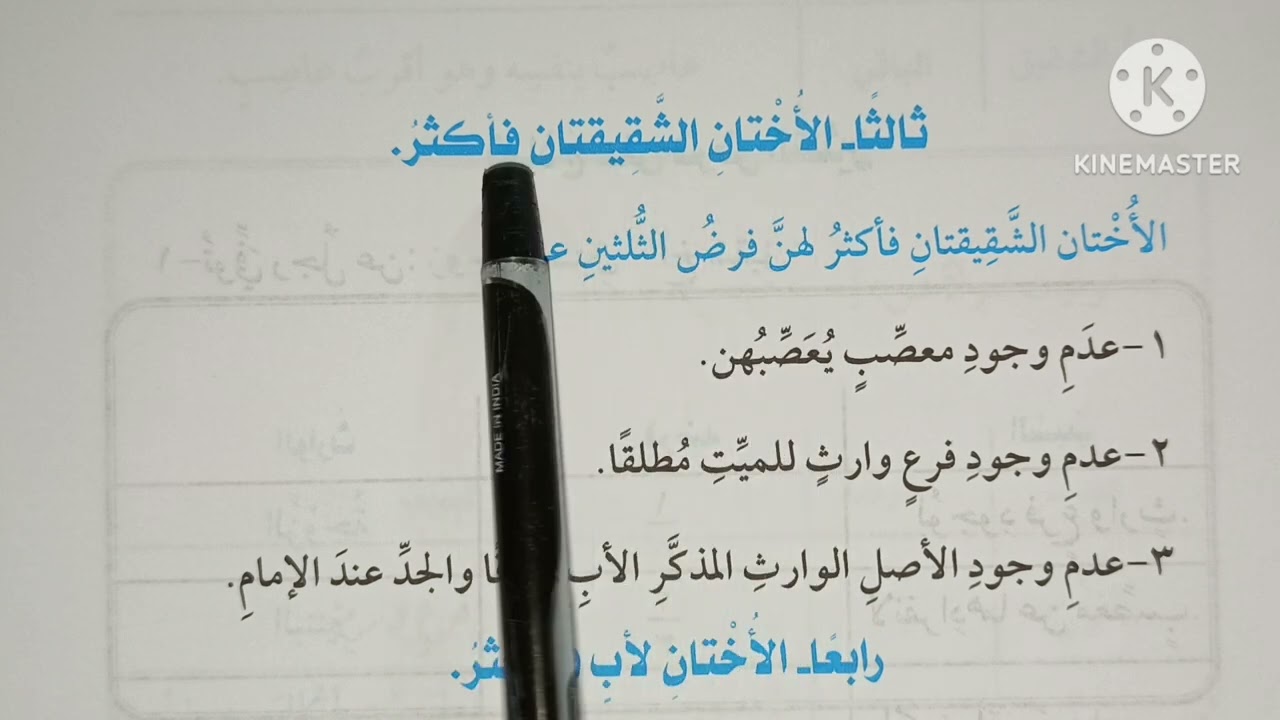 ثالثًا ـ الأُخْتانِ الشَّقِيقتان فأكثرُ.
الأُخْتان الشَّقِيقتانِ فأكثرُ لهنَّ فرضُ الثُّلثينِ
١- عدَمِ وجودِ معصِّبٍ يُعَصِّبُهن.
٢- عدمِ وجودِ فرعٍ وارثٍ للميِّتِ مُطلقًا.
٣- عدمِ وجودِ الأصلِ الوارثِ المذكَّرِ الأبِ والجدِّ عندَ الإمامِ.
رابعًا ـ الأُخْتانِ لأبِ
K
KINEMASTER
MADE IN INDIA